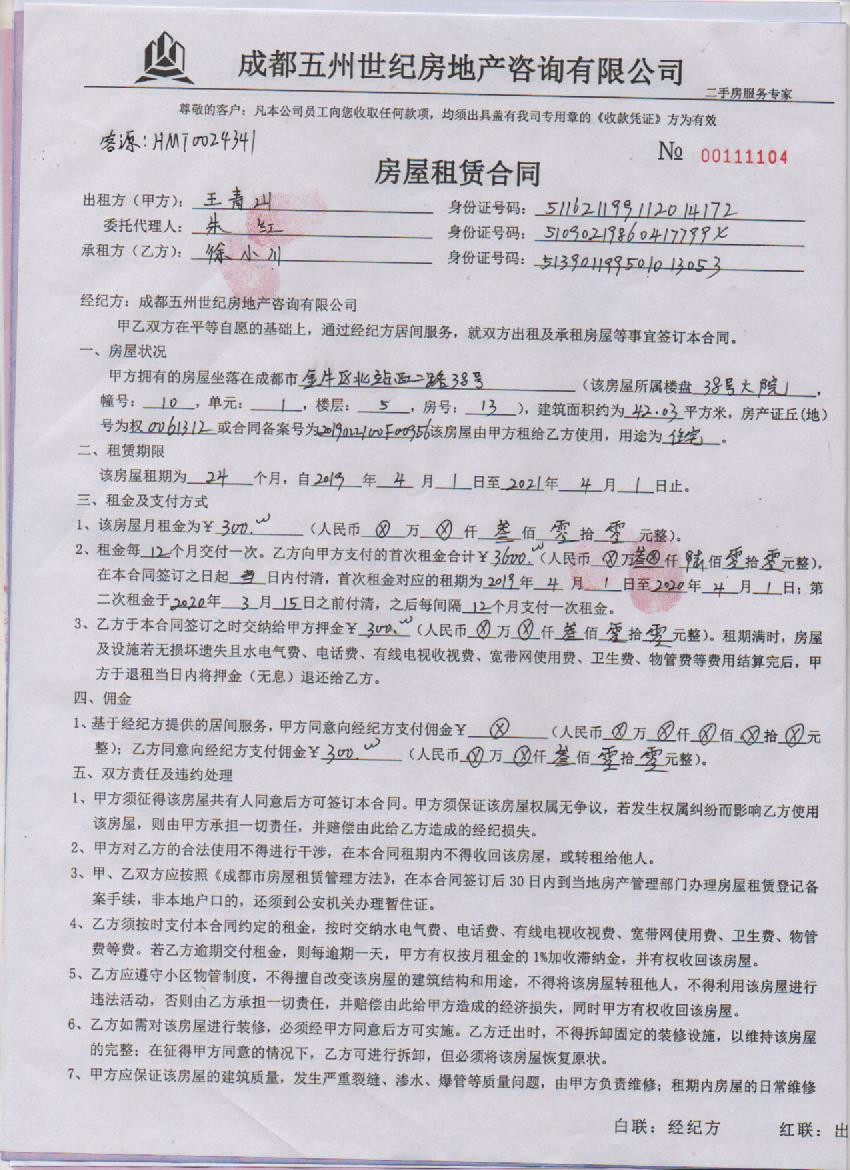 成都五州世纪房地产咨询有限公司
二手房服务专家
尊敬的客户：凡本公司员工向您收取任何款项，均须出具盖有我司专用章的《收款凭证》方为有效
客源：HMT0024341
№ 00111104
房屋租赁合同
出租方（甲方）：王青川 身份证号码：511621199112014172
委托代理人：朱红 身份证号码：51090219860417799X
承租方（乙方）：徐小川 身份证号码：513901199501013053
经纪方：成都五州世纪房地产咨询有限公司
甲乙双方在平等自愿的基础上，通过经纪方居间服务，就双方出租及承租房屋等事宜签订本合同。
一、房屋状况
甲方拥有的房屋坐落在成都市金牛区北站西二路38号（该房屋所属楼盘 38号大院，
幢号：10，单元：1，楼层：5，房号：13），建筑面积约为42.03平方米，房产证丘(地)
号为权0061312或合同备案号为2019022100F00956该房屋由甲方租给乙方使用，用途为住宅。
二、租赁期限
该房屋租期为 24 个月，自2019年 4 月 1 日至2021年 4 月 1 日止。
三、租金及支付方式
1、该房屋月租金为￥300.00（人民币 ⊗ 万 ⊗ 仟 叁 佰 零 拾 零 元整）。
2、租金每12个月交付一次。乙方向甲方支付的首次租金合计￥3600.00（人民币 ⊗万叁仟 陆佰零拾零元整），
在本合同签订之日起 当 日内付清，首次租金对应的租期为2019年 4 月 1 日至2020年 4 月 1 日；第
二次租金于2020年 3 月 15日之前付清，之后每间隔 12个月支付一次租金。
3、乙方于本合同签订之时交纳给甲方押金￥300.00（人民币⊗万⊗仟叁佰零拾零元整）。租期满时，房屋
及设施若无损坏遗失且水电气费、电话费、有线电视收视费、宽带网使用费、卫生费、物管费等费用结算完后，甲
方于退租当日内将押金（无息）退还给乙方。
四、佣金
1、基于经纪方提供的居间服务，甲方同意向经纪方支付佣金￥ ⊗ （人民币⊗万⊗仟⊗佰⊗拾⊗元
整）；乙方同意向经纪方支付佣金￥300.00（人民币⊗万⊗仟叁佰零拾零元整）。
五、双方责任及违约处理
1、甲方须征得该房屋共有人同意后方可签订本合同。甲方须保证该房屋权属无争议，若发生权属纠纷而影响乙方使用
该房屋，则由甲方承担一切责任，并赔偿由此给乙方造成的经纪损失。
2、甲方对乙方的合法使用不得进行干涉，在本合同租期内不得收回该房屋，或转租给他人。
3、甲、乙双方应按照《成都市房屋租赁管理方法》，在本合同签订后30日内到当地房产管理部门办理房屋租赁登记备
案手续，非本地户口的，还须到公安机关办理暂住证。
4、乙方须按时支付本合同约定的租金，按时交纳水电气费、电话费、有线电视收视费、宽带网使用费、卫生费、物管
费等费。若乙方逾期交付租金，则每逾期一天，甲方有权按月租金的1%加收滞纳金，并有权收回该房屋。
5、乙方应遵守小区物管制度，不得擅自改变该房屋的建筑结构和用途，不得将该房屋转租他人，不得利用该房屋进行
违法活动，否则由乙方承担一切责任，并赔偿由此给甲方造成的经济损失，同时甲方有权收回该房屋。
6、乙方如需对该房屋进行装修，必须经甲方同意后方可实施。乙方迁出时，不得拆卸固定的装修设施，以维持该房屋
的完整；在征得甲方同意的情况下，乙方可进行拆卸，但必须将该房屋恢复原状。
7、甲方应保证该房屋的建筑质量，发生严重裂缝、渗水、爆管等质量问题，由甲方负责维修；租期内房屋的日常维修
白联：经纪方 红联：出